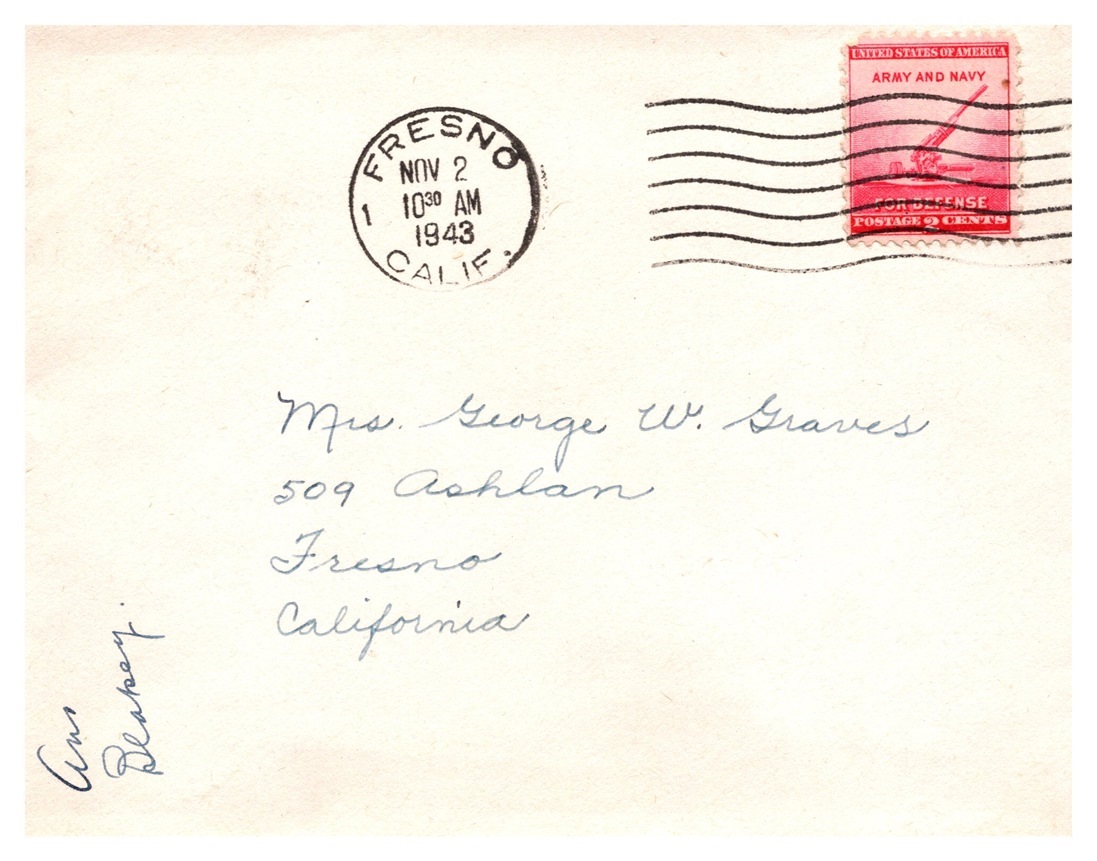 FRESNO
NOV 2
10 30 AM
1943
1
CALIF.
UNITED STATES OF AMERICA
ARMY AND NAVY
FOR DEFENSE
POSTAGE 2 CENTS
Mrs. George W. Graves
509 Ashlan
Fresno
California
Ans